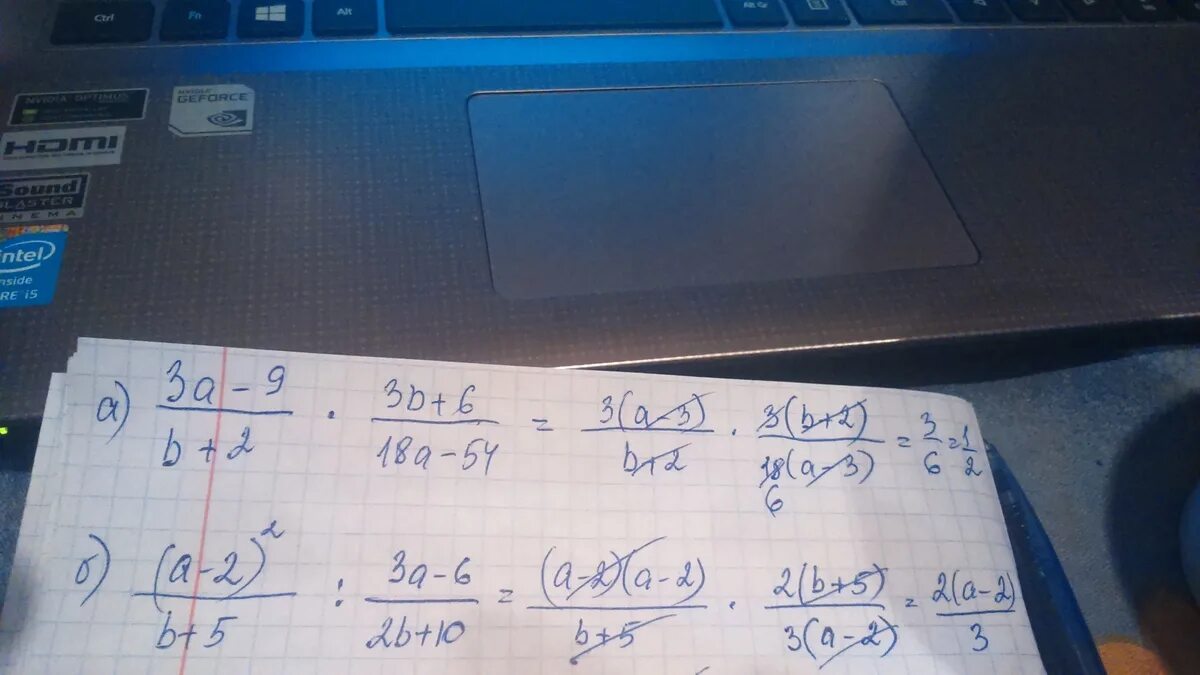 Ctrl Fn Alt Alt Gr Ctrl
NVIDIA OPTIMUS
NVIDIA
GEFORCE
HDMI
Sound
BLASTER
CINEMA
intel
inside
CORE i5
а) (3a - 9)/(b + 2) · (3b + 6)/(18a - 54) = 3(a - 3)/(b + 2) · 3(b + 2)/(18(a - 3)) = 3/6 = 1/2
6
б) (a - 2)²/(b + 5) : (3a - 6)/(2b + 10) = (a - 2)(a - 2)/(b + 5) · 2(b + 5)/(3(a - 2)) = 2(a - 2)/3